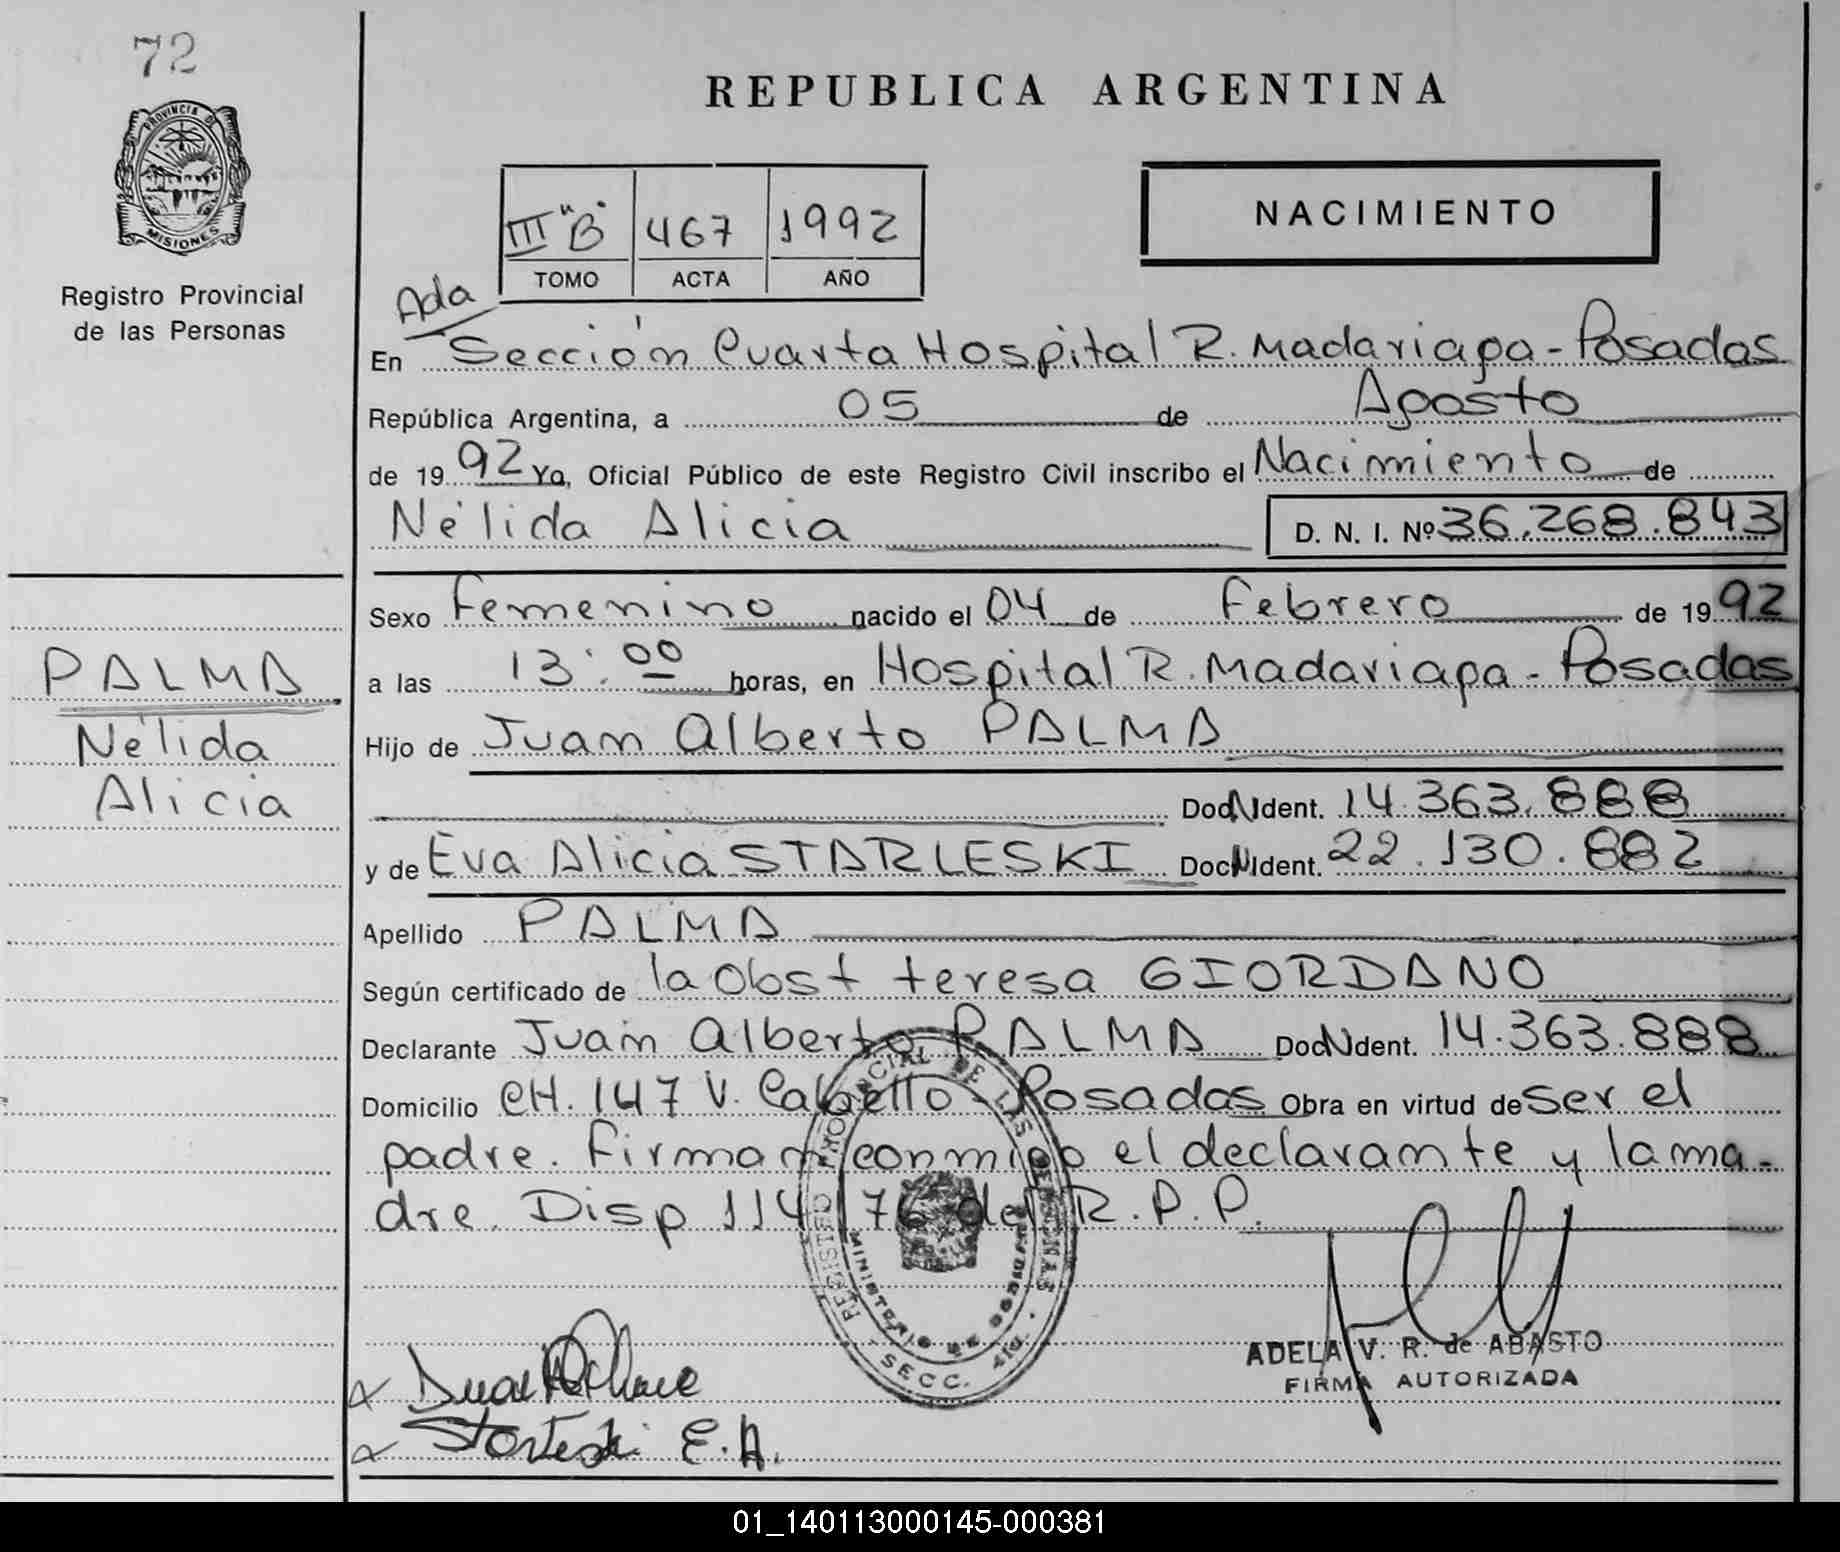 72
PROVINCIA DE
MISIONES
Registro Provincial
de las Personas
REPUBLICA ARGENTINA
III "B" 467 1992
TOMO ACTA AÑO
NACIMIENTO
Ada
En Sección Cuarta Hospital R. Madariaga - Posadas
República Argentina, a 05 de Agosto
de 1992 Yo, Oficial Público de este Registro Civil inscribo el Nacimiento de
Nélida Alicia D. N. I. Nº 36.268.843
Sexo Femenino nacido el 04 de Febrero de 1992
a las 13:00 horas, en Hospital R. Madariaga - Posadas
Hijo de Juan Alberto PALMA
Doc N Ident. 14.363.888
y de Eva Alicia STARLESKI Doc N Ident. 22.130.882
Apellido PALMA
Según certificado de la Obst teresa GIORDANO
Declarante Juan Alberto PALMA Doc N Ident. 14.363.888
Domicilio CH. 147 V. Cabello - Posadas Obra en virtud de ser el
padre. Firman conmigo el declarante y la ma-
dre. Disp 114/76 del R.P.P.
PALMA
Nélida
Alicia
REGISTRO PROVINCIAL DE LAS PERSONAS
MINISTERIO DE GOBIERNO
SECC. 4ta.
ADELA V. R. de ABASTO
FIRMA AUTORIZADA
E. A.
01_140113000145-000381